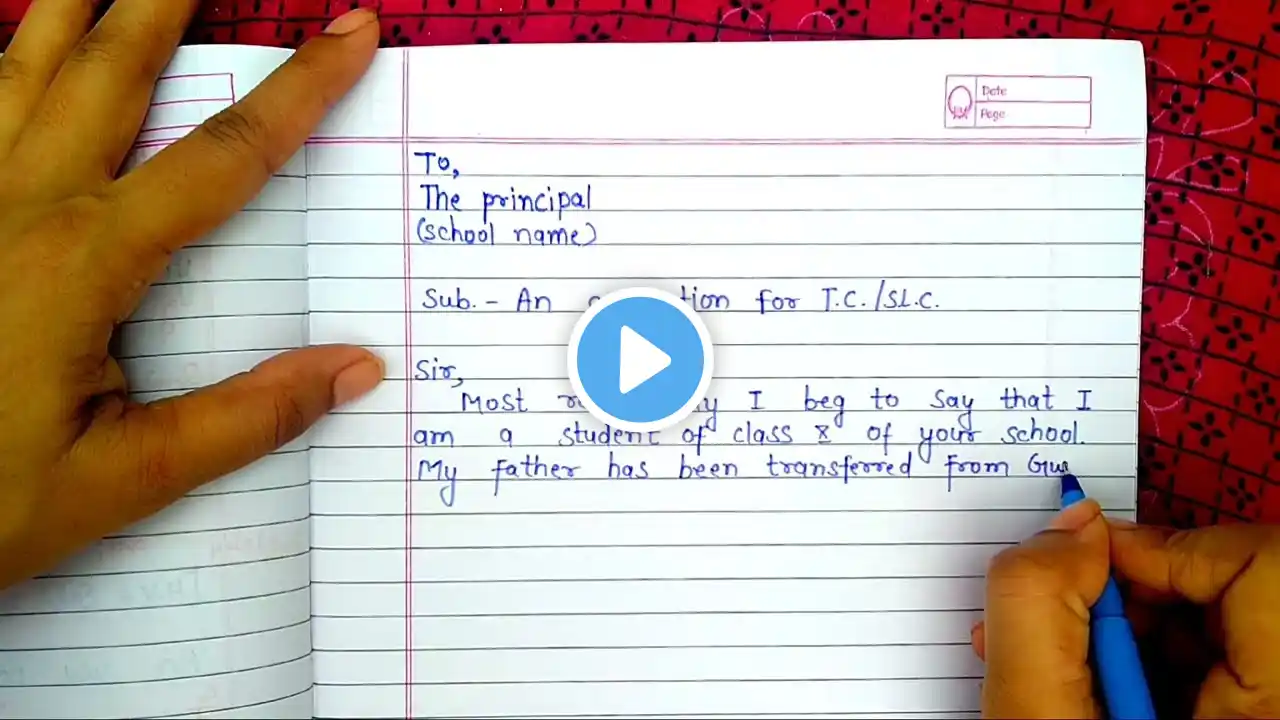 Date
Page
To,
The principal
(school name)
Sub. - An tion for T.C./S.L.C.
Sir,
Most I beg to say that I
am a student of class X of your school.
My father has been transferred from Gu